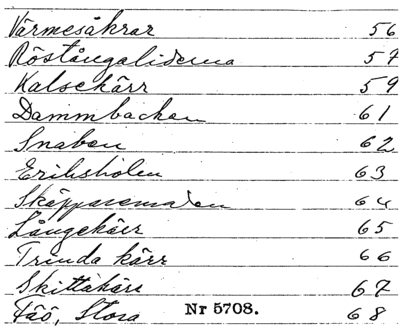 Värmesåkrar 56
Röstångaliderna 57
Kalsekärr 59
Dammbacken 61
Snaben 62
Eriksholen 63
64
Långekärr 65
Trinda kärr 66
Skittakärr 67
Fåö, Stora 68
Nr 5708.